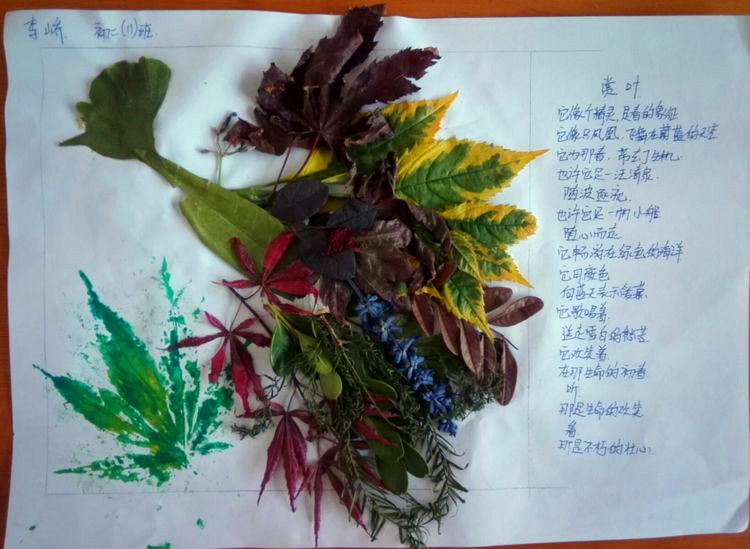 李峤 初二(11)班
赏叶
它像个精灵,是春的象征
它像只凤凰,飞翔在蔚蓝的天空
它为那春,带去了生机
也许它是一汪清泉
随波逐流
也许它是一帆小船
随心而走
它畅游在绿色的海洋
它用颜色
向蓝天表示
它歌唱着
送走雪白的
它欢笑着
在那生命的初春
听
那是生命的欢笑
看
那是不朽的壮心